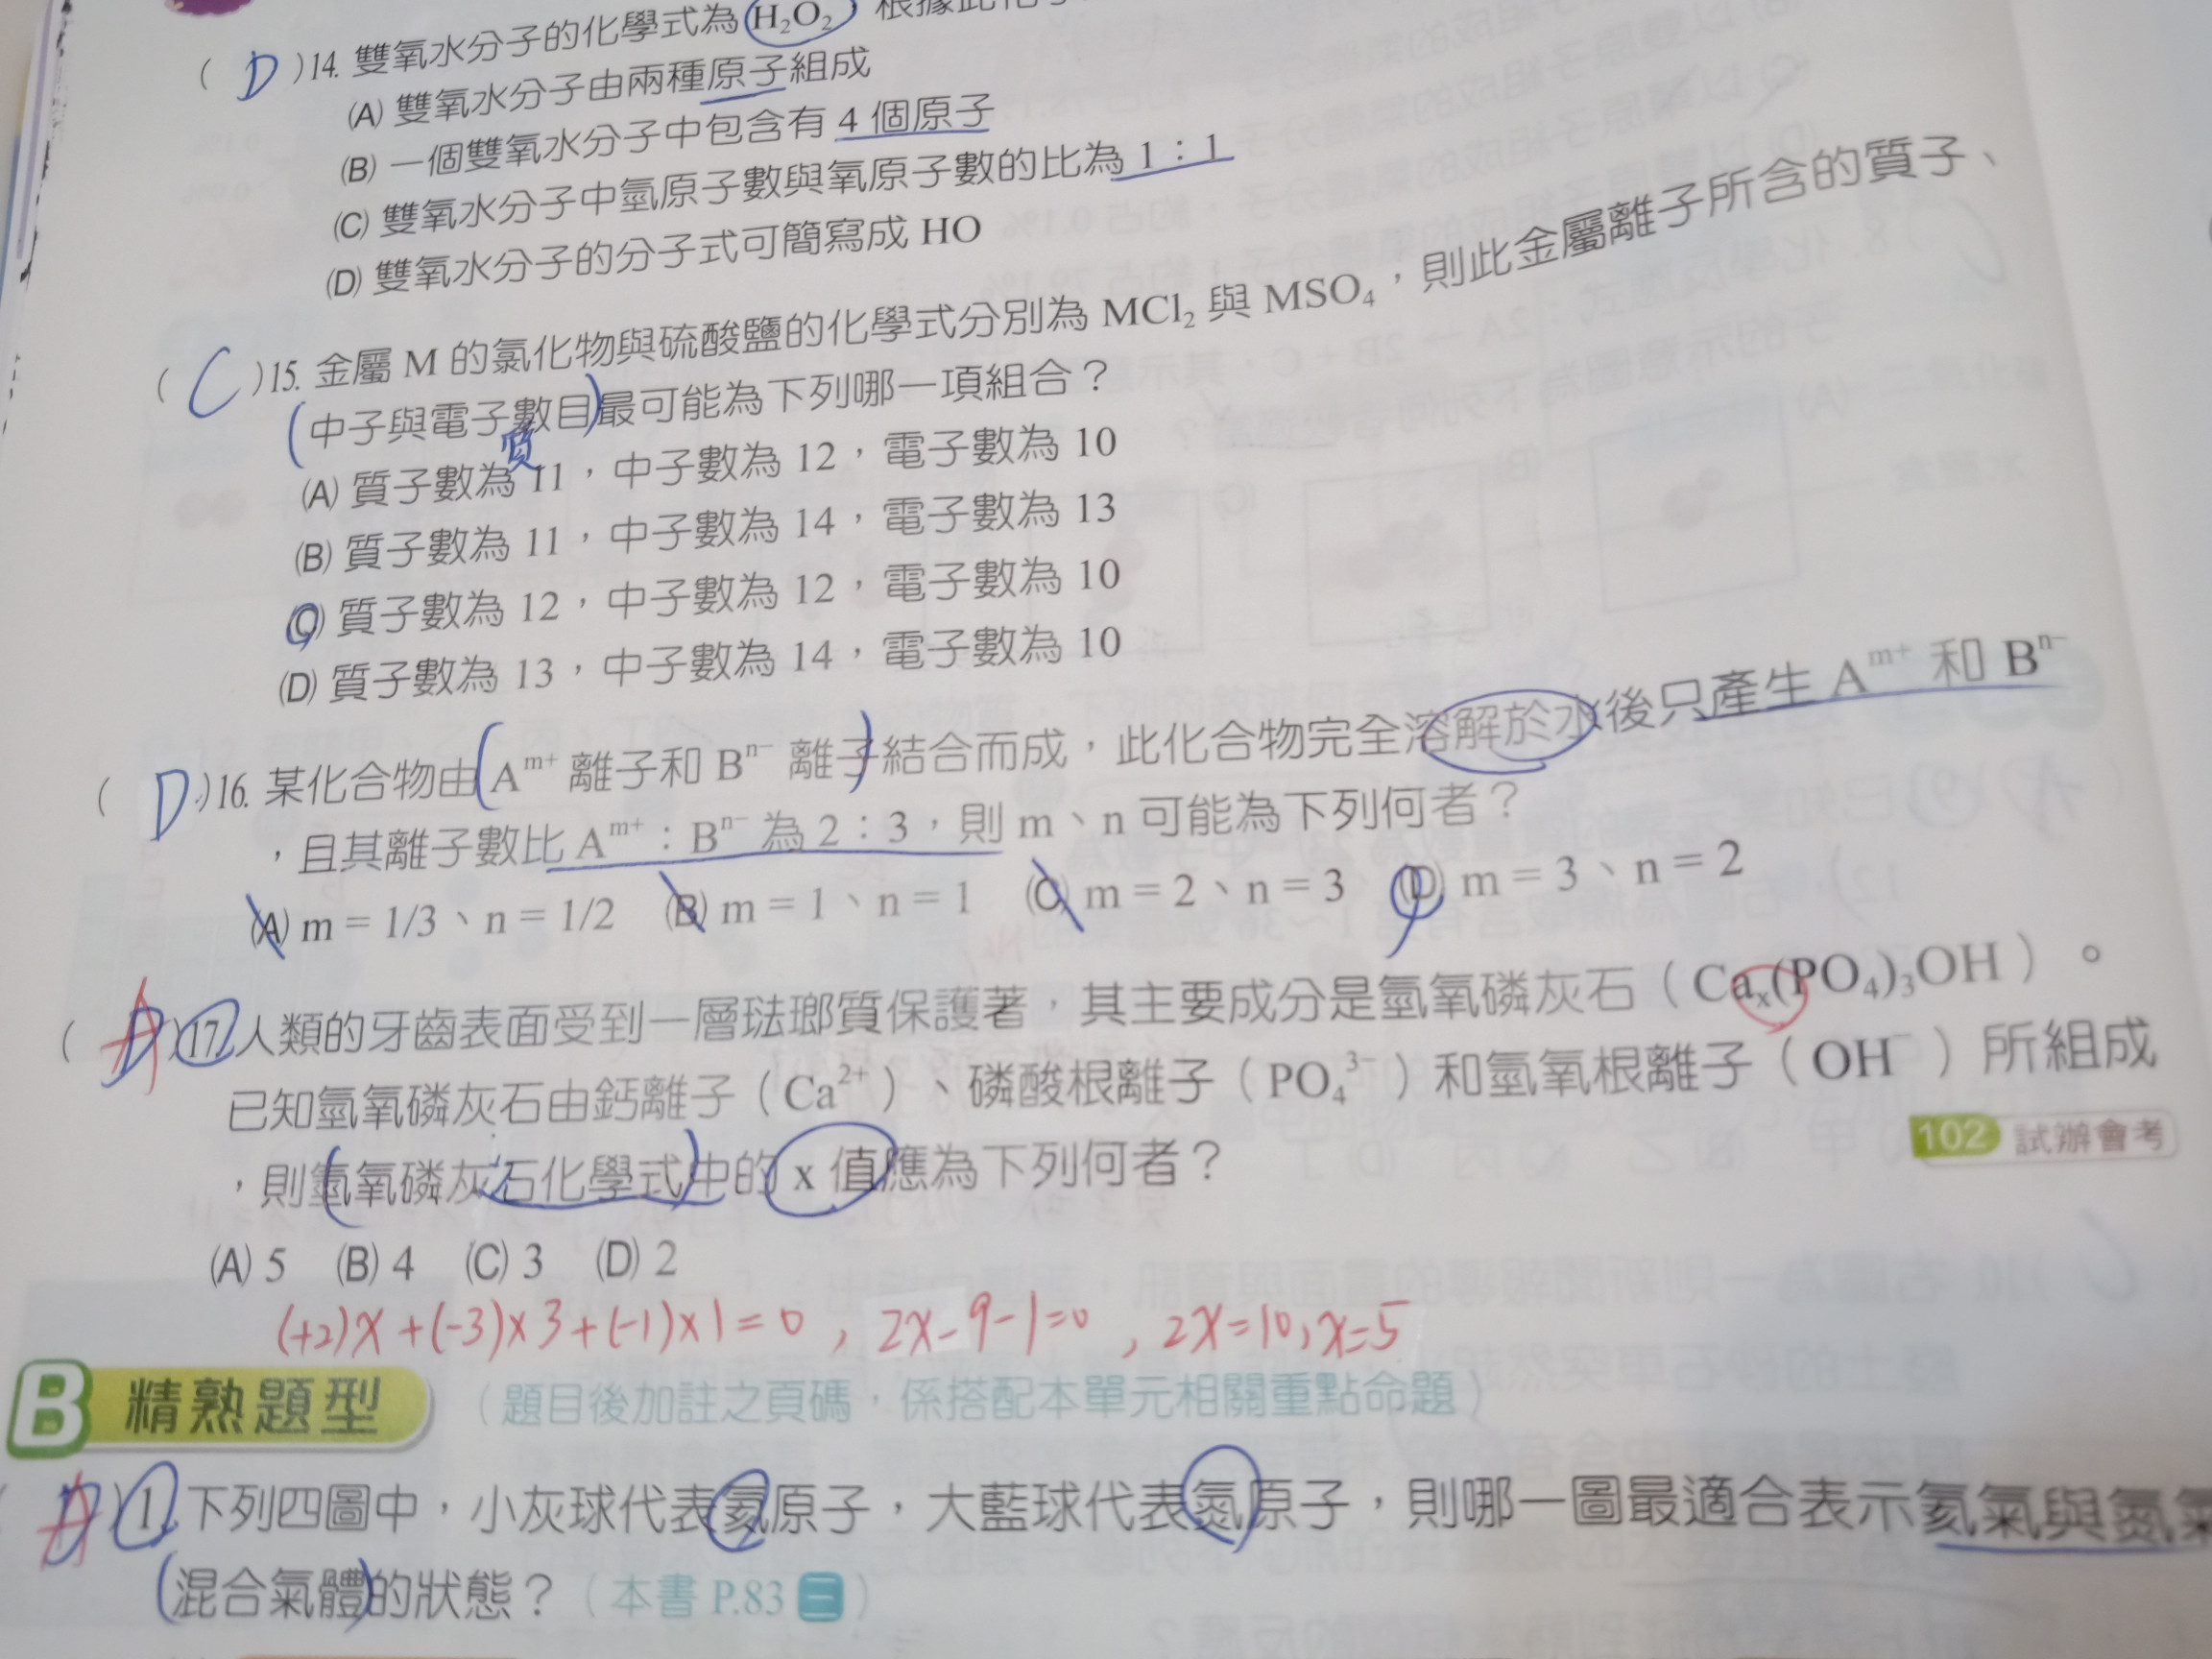 ( D )14. 雙氧水分子的化學式為 H₂O₂，根據此化學
(A) 雙氧水分子由兩種原子組成
(B) 一個雙氧水分子中包含有 4 個原子
(C) 雙氧水分子中氫原子數與氧原子數的比為 1：1
(D) 雙氧水分子的分子式可簡寫成 HO
( C )15. 金屬 M 的氯化物與硫酸鹽的化學式分別為 MCl₂ 與 MSO₄，則此金屬離子所含的質子、
(中子與電子數目)最可能為下列哪一項組合？
質
(A) 質子數為 11，中子數為 12，電子數為 10
(B) 質子數為 11，中子數為 14，電子數為 13
(C) 質子數為 12，中子數為 12，電子數為 10
(D) 質子數為 13，中子數為 14，電子數為 10
( D )16. 某化合物由(Aᵐ⁺ 離子和 Bⁿ⁻ 離子)結合而成，此化合物完全溶解於水後只產生 Aᵐ⁺ 和 Bⁿ⁻
，且其離子數比 Aᵐ⁺：Bⁿ⁻ 為 2：3，則 m、n 可能為下列何者？
(A) m = 1/3、n = 1/2 (B) m = 1、n = 1 (C) m = 2、n = 3 (D) m = 3、n = 2
( D A )17. 人類的牙齒表面受到一層琺瑯質保護著，其主要成分是氫氧磷灰石（Caₓ(PO₄)₃OH）。
已知氫氧磷灰石由鈣離子（Ca²⁺）、磷酸根離子（PO₄³⁻）和氫氧根離子（OH⁻）所組成
，則(氫氧磷灰石化學式)中的 x 值應為下列何者？
102 試辦會考
(A) 5 (B) 4 (C) 3 (D) 2
(+2)x+(-3)×3+(-1)×1=0，2x-9-1=0，2x=10，x=5
B 精熟題型 （題目後加註之頁碼，係搭配本單元相關重點命題）
( D A )1. 下列四圖中，小灰球代表氦原子，大藍球代表氮原子，則哪一圖最適合表示氦氣與氮氣
(混合氣體)的狀態？（本書 P.83 二）